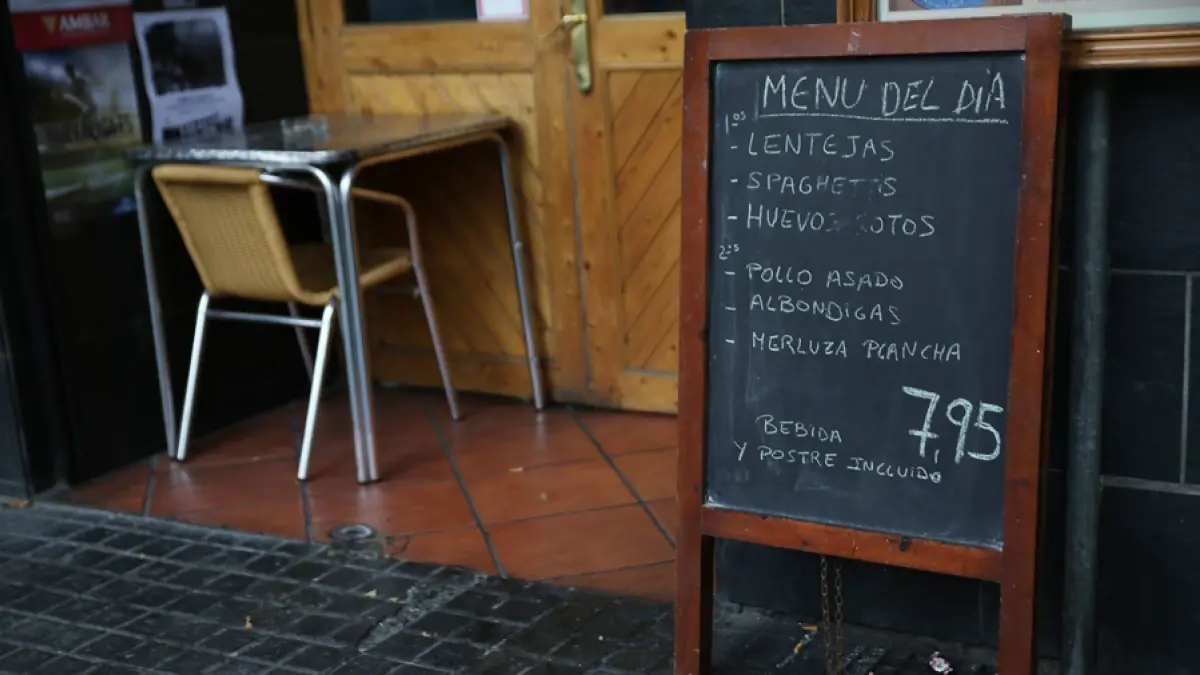 AMBAR
AMBAR
MENU DEL DIA
1os
- LENTEJAS
- SPAGHETTIS
- HUEVOS ROTOS
2os
- POLLO ASADO
- ALBONDIGAS
- MERLUZA PLANCHA
7,95
BEBIDA
Y POSTRE INCLUIDO